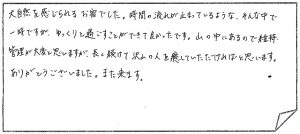 大自然を感じられるお宿でした。時間の流れが止まっているような、そんな中で
一時ですが、ゆっくりと過ごすことができて良かったです。山の中にあるので維持、
管理が大変と思いますが、長く続けて沢山の人を癒していただければと思います。
ありがとうございました。また来ます。